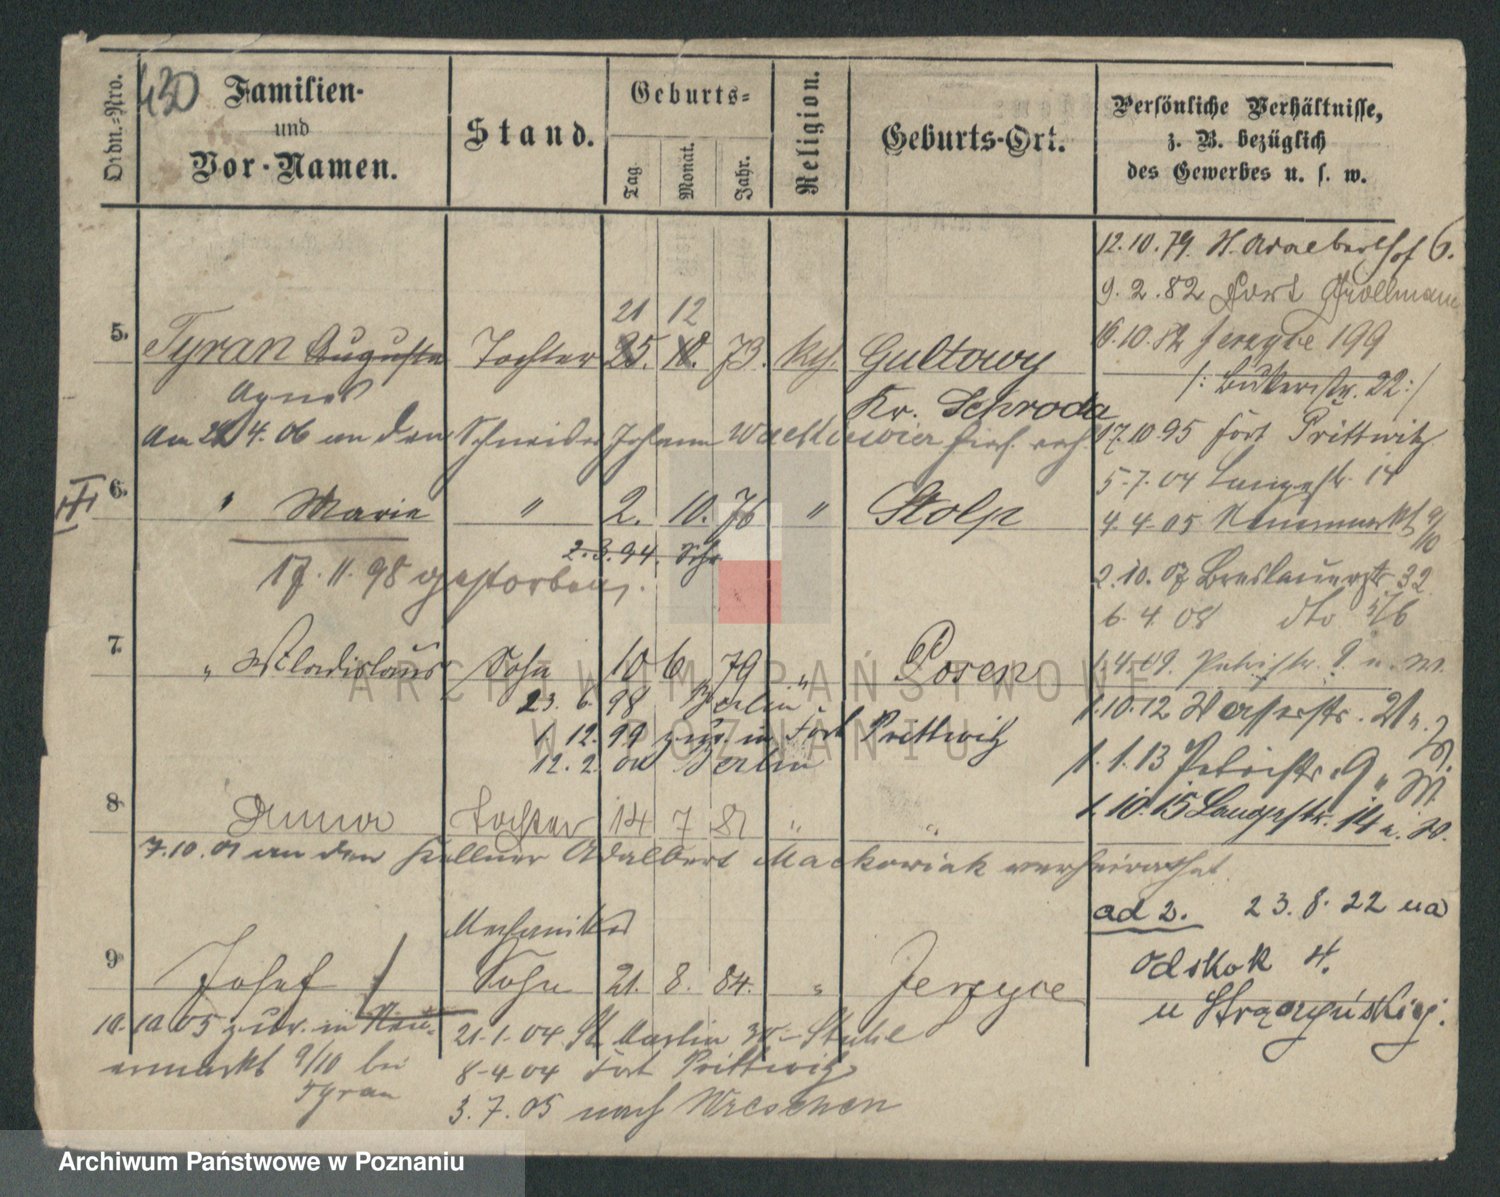 430
Ordn.-Nro.
Familien-
und
Vor-Namen.
Stand.
Geburts-
Tag
Monat.
Jahr.
Religion.
Geburts-Ort.
Persönliche Verhältnisse,
z. B. bezüglich
des Gewerbes u. s. w.
12.10.79. H. Adalberthof 6.
9.2.82 Fort Grollmann
16.10.82 Jerzyce 199
/: Bukerstr. 22 :/
17.10.95 Fort Prittwitz
5.7.04 Langestr. 14
4.4.05 Neuermarkt 9/10
2.10.07 Breslauerstr 32
6.4.08 dto
Petristr. 9 u. W.
1.10.12 Wasserstr. 21
1.1.13 Petristr. 9
1.10.15 Langestr. 14 u. W.
ad 2. 23.8.22 na
Odskok 4.
u Strączyńskiej.
21 12
5. Tyran Auguste Tochter 25. 10. 73. kth. Gultowy
Agnes Kr. Schroda
Am 4.06 an den Schneider Johann verh.
III 6. " Marie " 2. 10. 76 " Stolp
2.3.94.
17.11.98 gestorben.
7. " Wladislaus Sohn 10 6 79 " Posen
23.6.98 Berlin
1.12.99 zur. in Fort Prittwitz
12.2. Berlin
8 Anna Tochter 14 7 81 " "
7.10.01 an den Kellner Adalbert Mackowiak verheirathet
Mechaniker
9 Josef Sohn 21. 8. 84. " Jerzyce
10.10.05 zur. in Neu-
ermarkt 9/10 bei
Tyran
21.1.04 St. Martin
8.4.04 Fort Prittwitz
3.7.05 nach Wreschen
ARCHIWUM PAŃSTWOWE
W POZNANIU
Archiwum Państwowe w Poznaniu